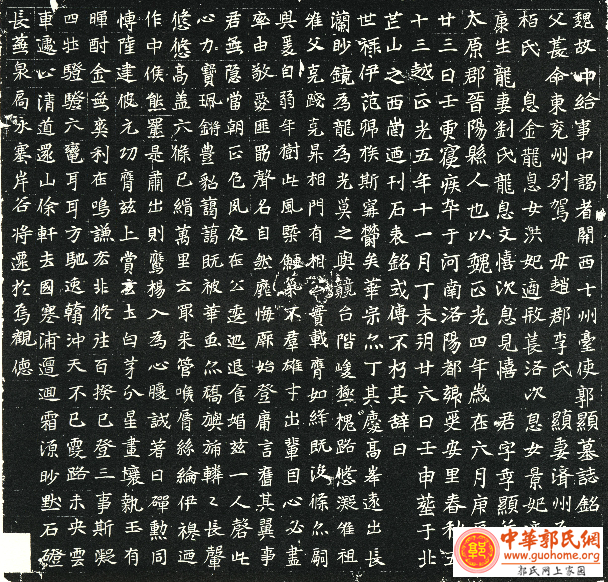 魏故中給事中謁者關西十州臺使郭顯墓誌銘
父萇命東兖州別駕 母趙郡李氏 顯妻濟州
栢氏 息金龍息女洪妃適敬萇洛次息女景妃
康生龍妻劉氏龍息文憘次息見憘 君字季顯
太原郡晉陽縣人也以魏正光四年歲在六月庚
廿三日壬寅寢疾卒于河南洛陽都鄉受安里春秋五
十三越正光五年十一月丁未朔廿六日壬申葬于北
芒山之西崗迺刊石表銘式傳不朽其辭曰
世祿伊范歸族斯寧欝矣華宗尒丁其慶高峯遠出長
瀾眇鏡為龍為光莫之與競台階峻極槐路悠凝雖祖
雄父克踐克昇相門有相公實載膺如絲既設徐尒嗣
興爰自弱年樹此風槩鯁氣不羣雄才出輩目心必盡
率由敬愛匪勗聲名自然靡悔厥始登庸言奮其翼事
君無隱當朝正色夙夜在公委迤退食媚茲一人磬此
心力寶珮鏘豐貂藹藹既被華虫尒旟旆轔々長轂
悠悠高盖六條已緝萬里云來管喉脣絲綸伊穆迴
作中候熊羆是肅出則鷹揚入為心膂誠著日磾勲同
博陸建彼元功膺茲上賞玄土白茅分星畫壤執玉有
暉酎金無爽利在鳴謙亢非修往百揆已登三事斯凝
四牡騤騤六轡耳耳方馳逸翰沖天不已霎路未央雲
車遽已清道還山徐軒去國寒浦邅迴霜源眇默石磴
長蕪泉扃永塞岸谷將遷於焉觀德
中華郭氏網
www.guohome.org
郭氏網上家園